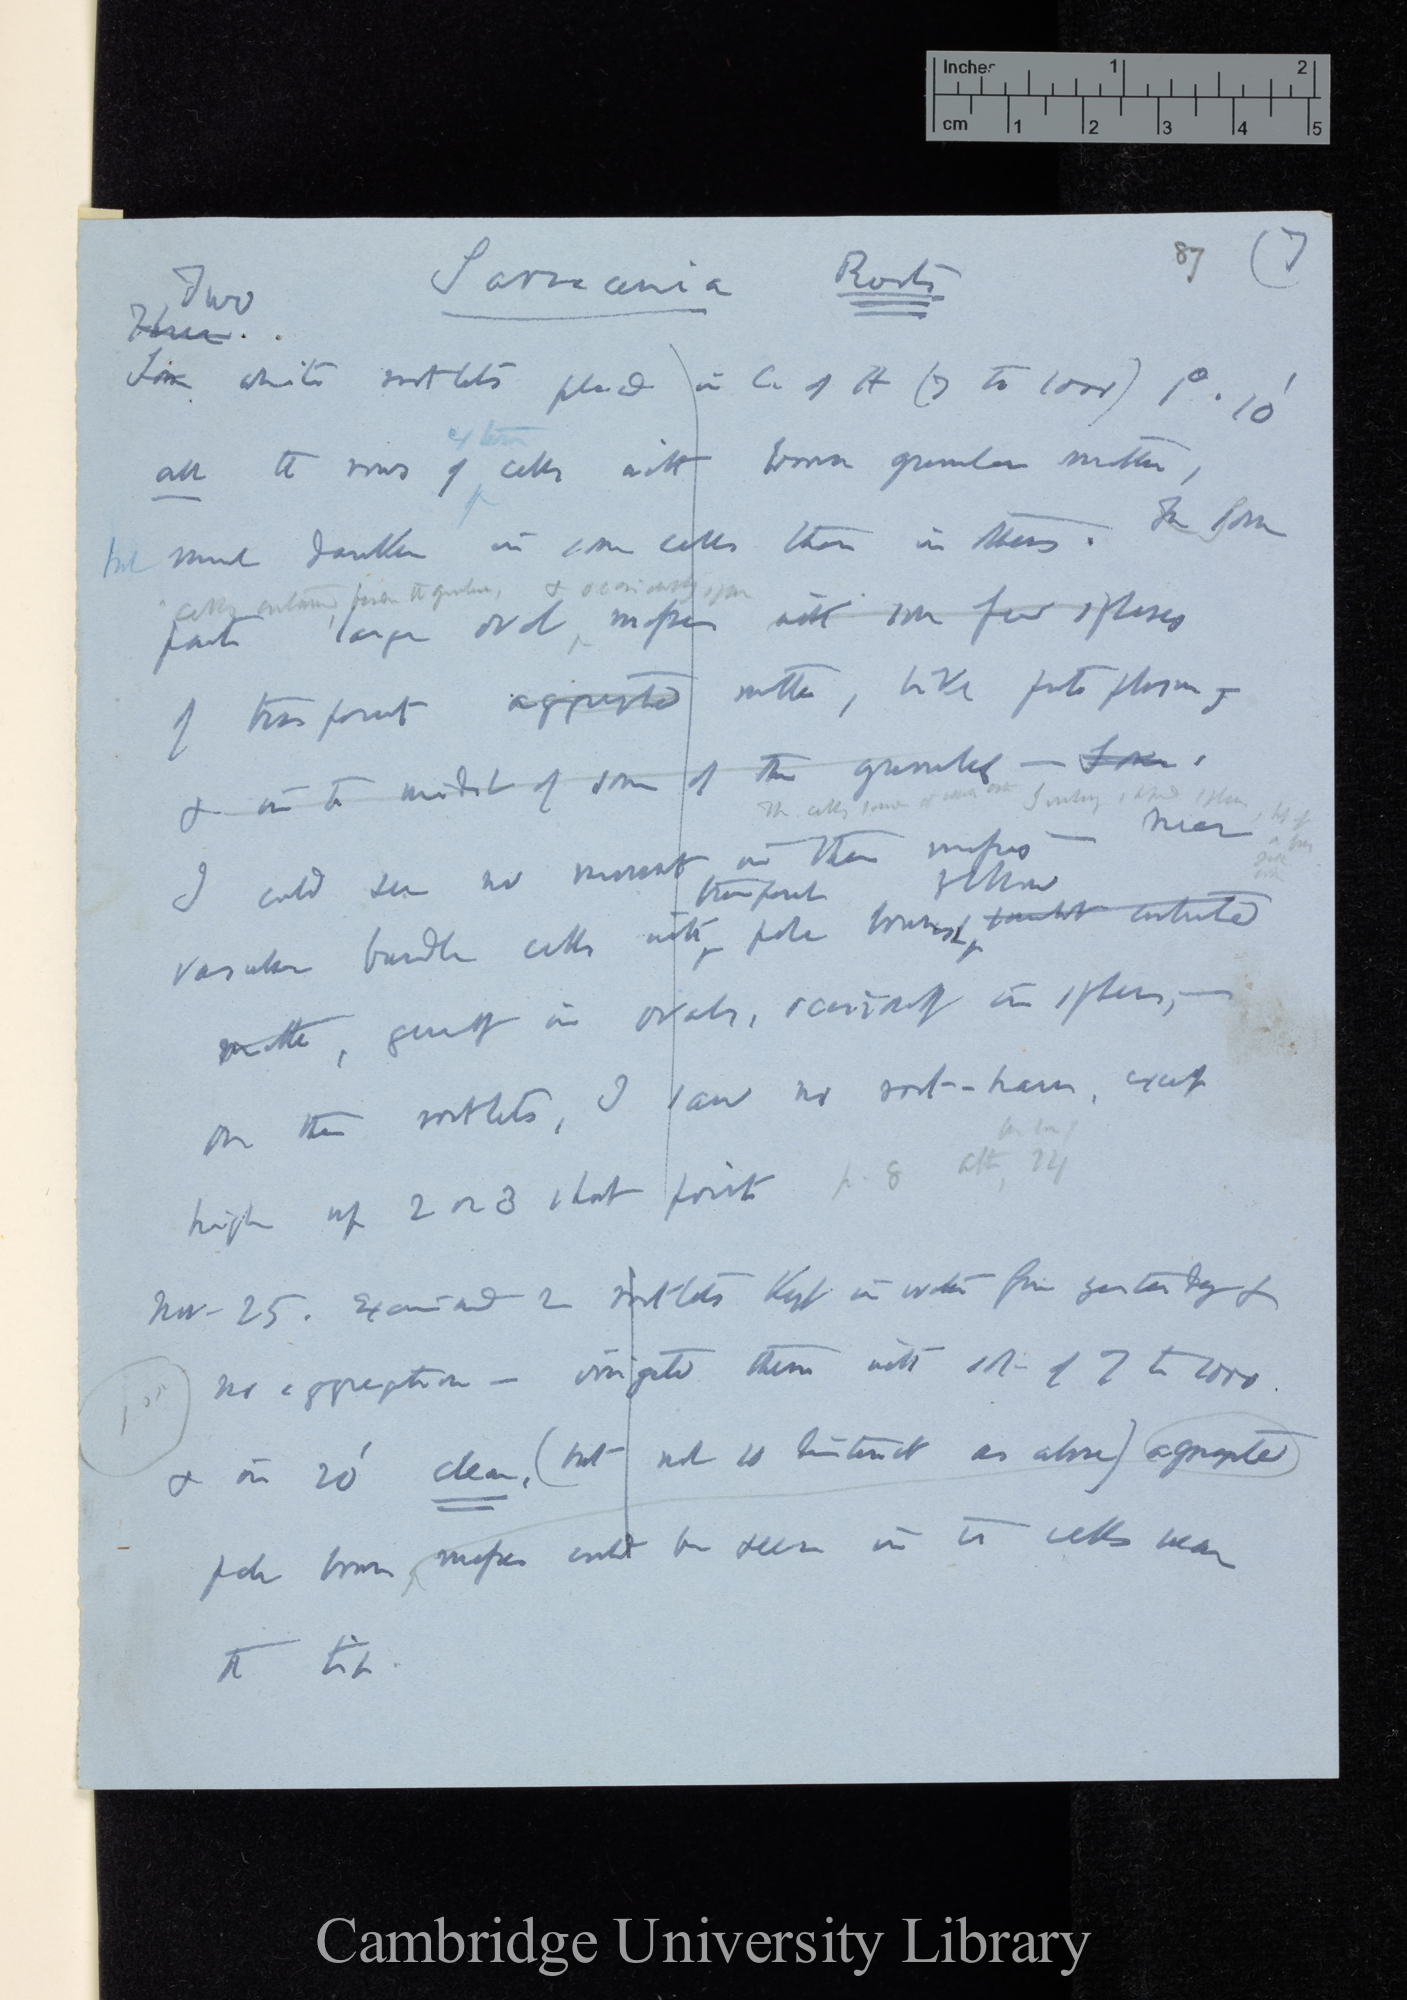 Inches 1 2
cm 1 2 3 4 5
87 (7
Sarracenia Roots
Two
Three
Some white rootlets placed in C. of A (7 to 1000) 1°. 10'
extern
all the rows of cells with brown granular matter,
but much darker in some cells than in others. The brown
cells contained, the granules, & occasionally
parts large oval masses with some few spheres
of transparent aggregated matter, like protoplasm,
& in the midst of some of the granules — Some
The cells
I could see no movement in these masses — Near
transparent yellow
vascular bundle cells with pale brownish contented
matter, generally in ovals, occasionally in spheres, —
on these rootlets, I saw no root-hairs, except
high up 2 or 3 short points p. 8 after 24
Nov. 25. Examined 2 rootlets kept in water from yesterday &
no aggregation — irrigated them with sol. of 7 to 1000.
& in 20' clear, (but not so distinct as above) aggregated
pale brown masses could be seen in the cells near
the tip.
Cambridge University Library